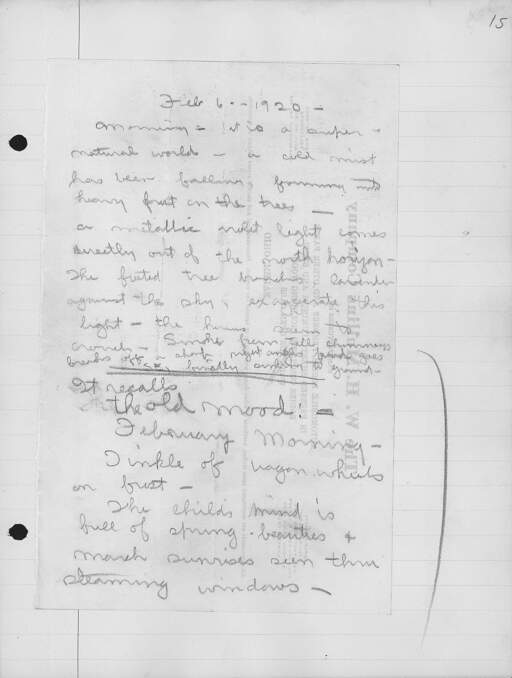 15
Feb 6 - - 1920 -
Morning - it is a super -
natural world - a cold mist
has been falling, forming into
heavy frost on the trees —
a metallic violet light comes
directly out of the north horizon -
The frosted tree branches lavender
against the sky, exaggerate this
light - the houses seem to
- Smoke from tall chimneys
breaks off a short
to ground -
It recalls
the old mood: -
February Morning -
Tinkle of wagon wheels
on frost -
The childs mind is
full of spring beauties &
march sunrises seen thru
steaming windows -
The W. H. Company